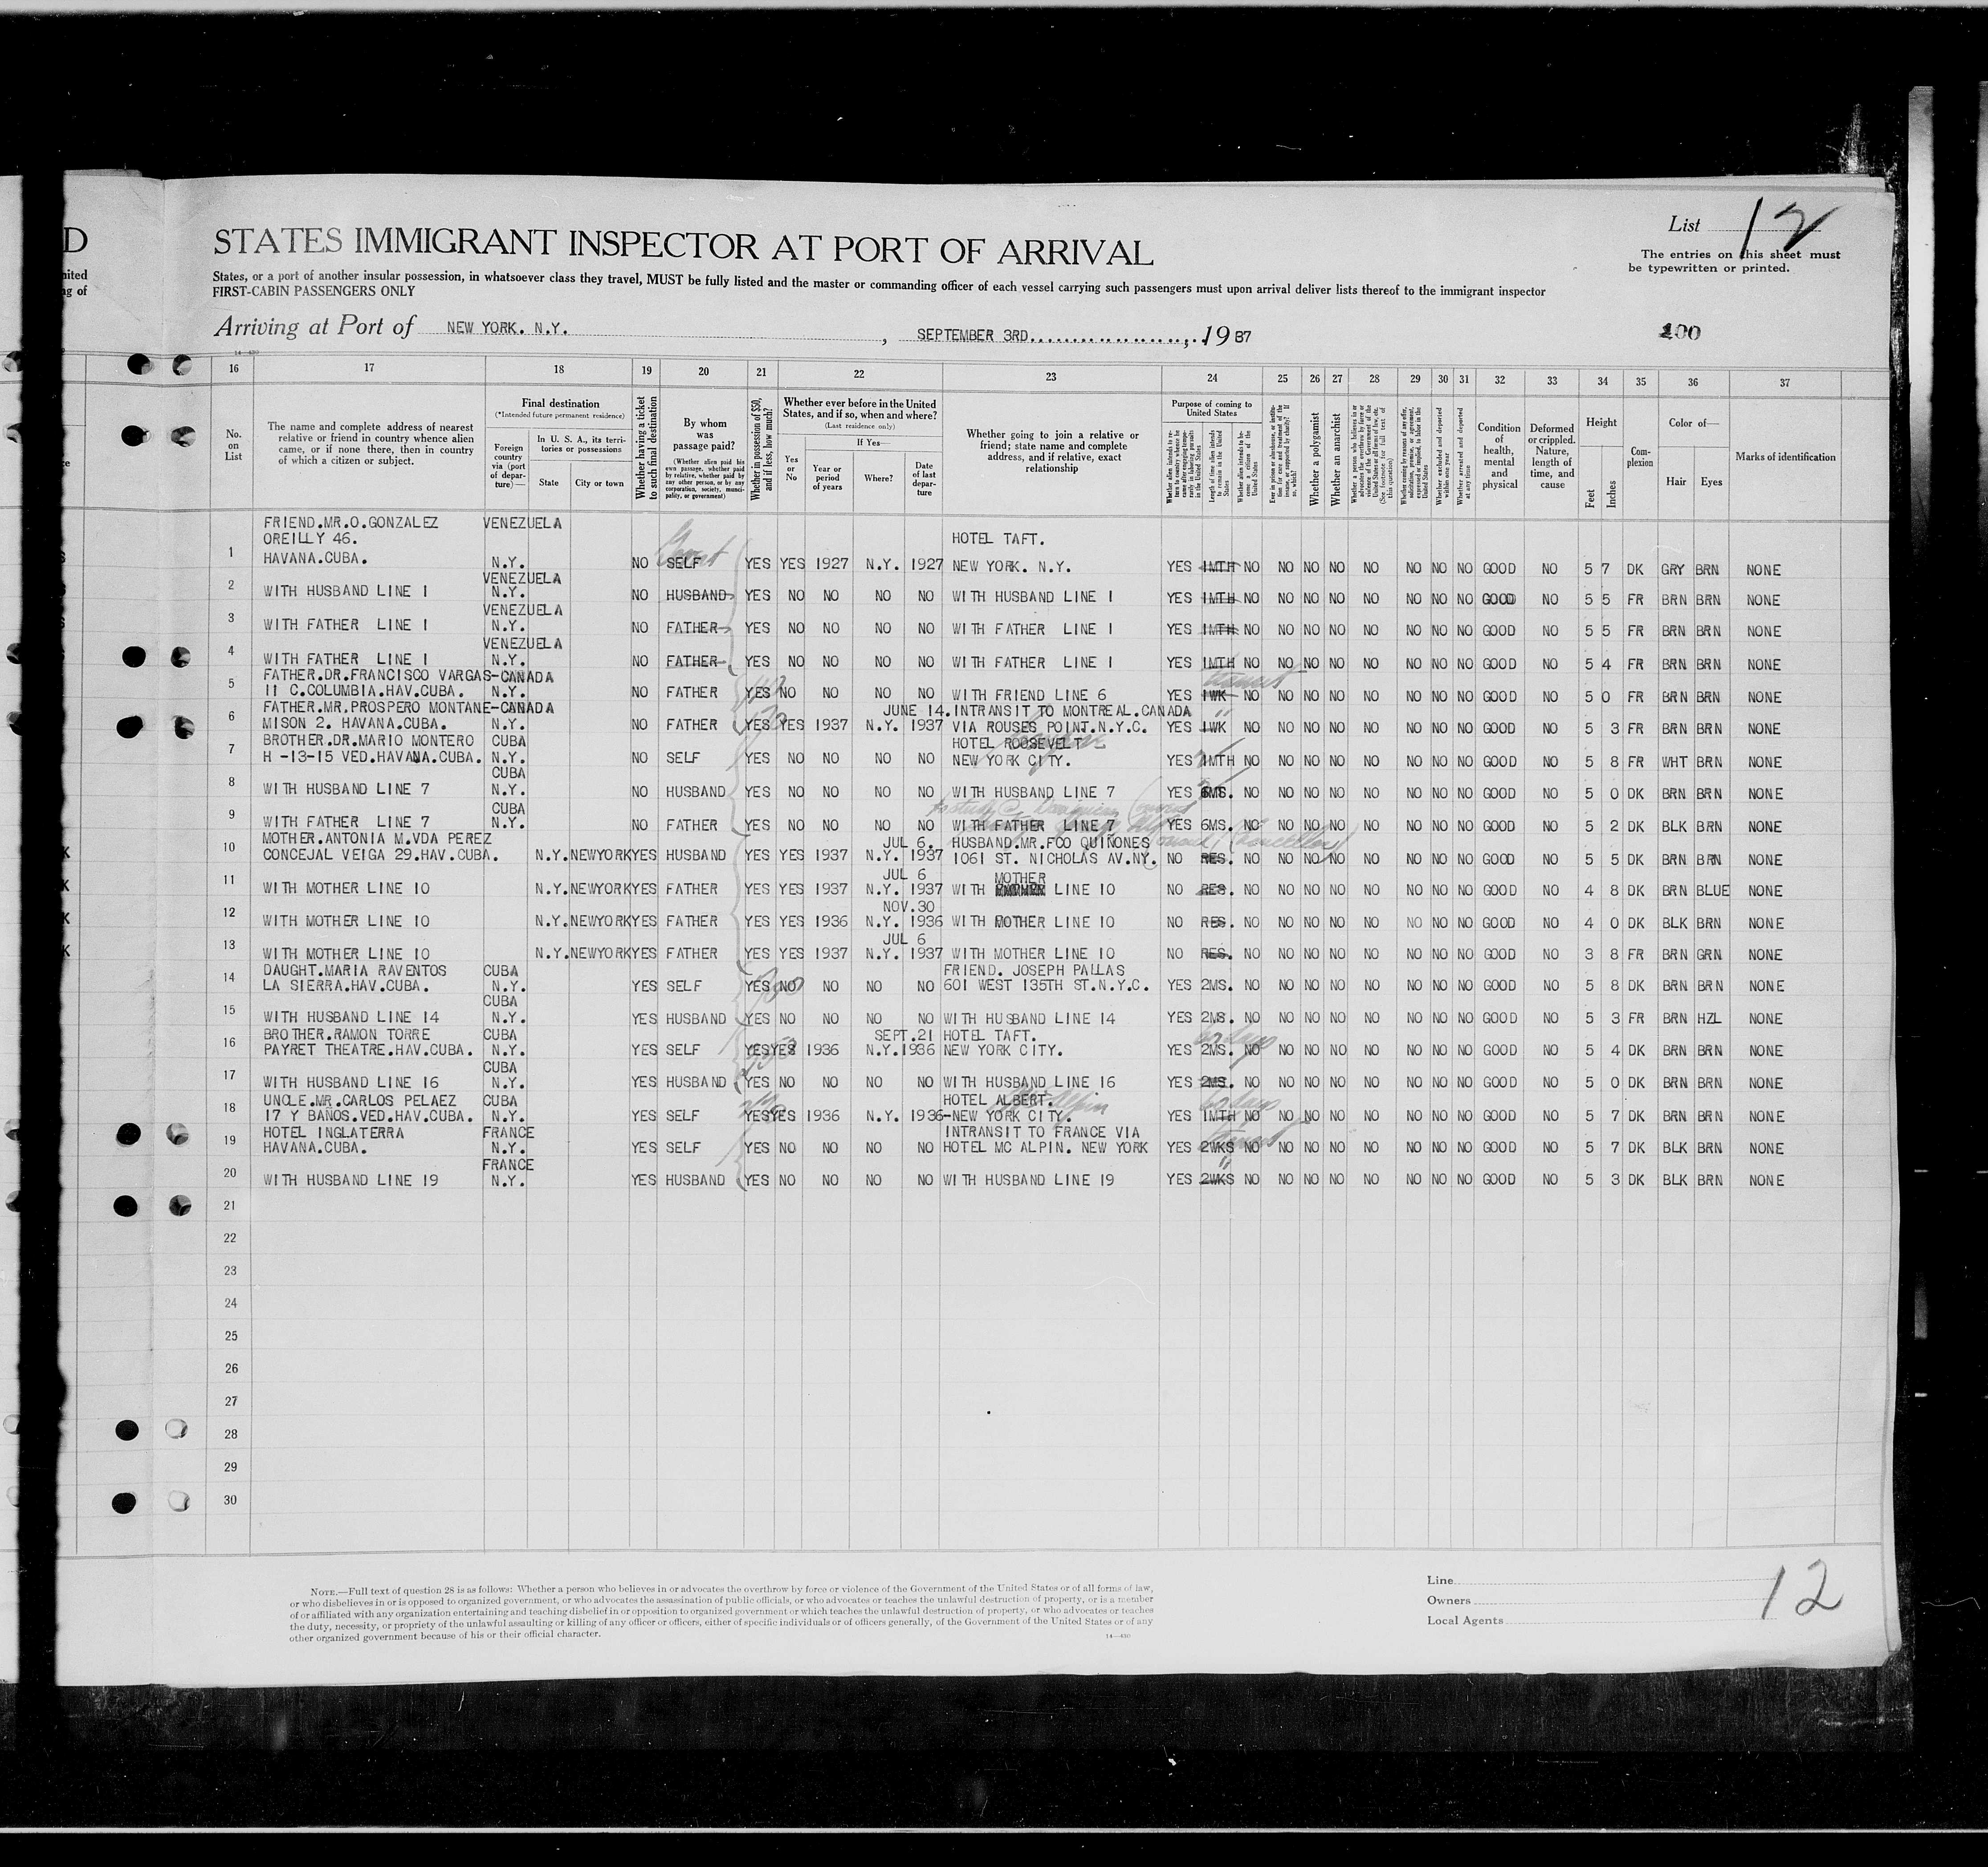 D
nited
ng of
STATES IMMIGRANT INSPECTOR AT PORT OF ARRIVAL
List 12
The entries on this sheet must
be typewritten or printed.
States, or a port of another insular possession, in whatsoever class they travel, MUST be fully listed and the master or commanding officer of each vessel carrying such passengers must upon arrival deliver lists thereof to the immigrant inspector
FIRST-CABIN PASSENGERS ONLY
Arriving at Port of NEW YORK. N.Y. , SEPTEMBER 3RD , 19 37
14—430
16 17 18 19 20 21 22 23 24 25 26 27 28 29 30 31 32 33 34 35 36 37
No. on List
The name and complete address of nearest relative or friend in country whence alien came, or if none there, then in country of which a citizen or subject.
Final destination
(*Intended future permanent residence)
Foreign country via (port of departure)—
In U. S. A., its territories or possessions
State City or town
Whether having a ticket to such final destination
By whom was passage paid?
(Whether alien paid his own passage, whether paid by relative, whether paid by any other person, or by any corporation, society, municipality, or government)
Whether in possession of $50, and if less, how much?
Whether ever before in the United States, and if so, when and where?
(Last residence only)
Yes or No
If Yes—
Year or period of years
Where?
Date of last departure
Whether going to join a relative or friend; state name and complete address, and if relative, exact relationship
Purpose of coming to United States
Whether alien intends to return to country whence he came after engaging temporarily in laboring pursuits in the United States
Length of time alien intends to remain in the United States
Whether alien intends to become a citizen of the United States
Ever in prison or almshouse, or institution for care and treatment of the insane, or supported by charity? If so, which?
Whether a polygamist
Whether an anarchist
Whether a person who believes in or advocates the overthrow by force or violence of the Government of the United States or all forms of law, etc. (See footnote for full text of this question)
Whether coming by reason of any offer, solicitation, promise, or agreement, expressed or implied, to labor in the United States
Whether excluded and deported within one year
Whether arrested and deported at any time
Condition of health, mental and physical
Deformed or crippled. Nature, length of time, and cause
Height
Feet Inches
Complexion
Color of—
Hair Eyes
Marks of identification
FRIEND.MR.O.GONZALEZ VENEZUELA
OREILLY 46. HOTEL TAFT.
1 HAVANA.CUBA. N.Y. NO SELF YES YES 1927 N.Y. 1927 NEW YORK. N.Y. YES 1MTH NO NO NO NO NO NO NO NO GOOD NO 5 7 DK GRY BRN NONE
VENEZUELA
2 WITH HUSBAND LINE 1 N.Y. NO HUSBAND YES NO NO NO NO WITH HUSBAND LINE 1 YES 1MTH NO NO NO NO NO NO NO NO GOOD NO 5 5 FR BRN BRN NONE
VENEZUELA
3 WITH FATHER LINE 1 N.Y. NO FATHER YES NO NO NO NO WITH FATHER LINE 1 YES 1MTH NO NO NO NO NO NO NO NO GOOD NO 5 5 FR BRN BRN NONE
VENEZUELA
4 WITH FATHER LINE 1 N.Y. NO FATHER YES NO NO NO NO WITH FATHER LINE 1 YES 1MTH NO NO NO NO NO NO NO NO GOOD NO 5 4 FR BRN BRN NONE
FATHER.DR.FRANCISCO VARGAS-CANADA transit
5 11 C.COLUMBIA.HAV.CUBA. N.Y. NO FATHER YES NO NO NO NO WITH FRIEND LINE 6 YES 1WK NO NO NO NO NO NO NO NO GOOD NO 5 0 FR BRN BRN NONE
FATHER.MR.PROSPERO MONTANE-CANADA JUNE 14. INTRANSIT TO MONTREAL.CANADA "
6 MISON 2. HAVANA.CUBA. N.Y. NO FATHER YES YES 1937 N.Y. 1937 VIA ROUSES POINT.N.Y.C. YES 1WK NO NO NO NO NO NO NO NO GOOD NO 5 3 FR BRN BRN NONE
BROTHER.DR.MARIO MONTERO CUBA HOTEL ROOSEVELT
7 H -13-15 VED.HAVANA.CUBA. N.Y. NO SELF YES NO NO NO NO NEW YORK CITY. YES 1MTH NO NO NO NO NO NO NO NO GOOD NO 5 8 FR WHT BRN NONE
CUBA
8 WITH HUSBAND LINE 7 N.Y. NO HUSBAND YES NO NO NO NO WITH HUSBAND LINE 7 YES 6MS. NO NO NO NO NO NO NO NO GOOD NO 5 0 DK BRN BRN NONE
CUBA
9 WITH FATHER LINE 7 N.Y. NO FATHER YES NO NO NO NO WITH FATHER LINE 7 YES 6MS. NO NO NO NO NO NO NO NO GOOD NO 5 2 DK BLK BRN NONE
MOTHER.ANTONIA M.VDA PEREZ JUL 6. HUSBAND.MR.FCO QUIÑONES
10 CONCEJAL VEIGA 29.HAV.CUBA. N.Y. NEWYORK YES HUSBAND YES YES 1937 N.Y. 1937 1061 ST. NICHOLAS AV.NY. NO RES. NO NO NO NO NO NO NO NO GOOD NO 5 5 DK BRN BRN NONE
JUL 6 MOTHER
11 WITH MOTHER LINE 10 N.Y. NEWYORK YES FATHER YES YES 1937 N.Y. 1937 WITH LINE 10 NO RES. NO NO NO NO NO NO NO NO GOOD NO 4 8 DK BRN BLUE NONE
NOV.30
12 WITH MOTHER LINE 10 N.Y. NEWYORK YES FATHER YES YES 1936 N.Y. 1936 WITH MOTHER LINE 10 NO RES. NO NO NO NO NO NO NO NO GOOD NO 4 0 DK BLK BRN NONE
JUL 6
13 WITH MOTHER LINE 10 N.Y. NEWYORK YES FATHER YES YES 1937 N.Y. 1937 WITH MOTHER LINE 10 NO RES. NO NO NO NO NO NO NO NO GOOD NO 3 8 FR BRN GRN NONE
DAUGHT.MARIA RAVENTOS CUBA FRIEND. JOSEPH PALLAS
14 LA SIERRA.HAV.CUBA. N.Y. YES SELF YES NO NO NO NO 601 WEST 135TH ST.N.Y.C. YES 2MS. NO NO NO NO NO NO NO NO GOOD NO 5 8 DK BRN BRN NONE
CUBA
15 WITH HUSBAND LINE 14 N.Y. YES HUSBAND YES NO NO NO NO WITH HUSBAND LINE 14 YES 2MS. NO NO NO NO NO NO NO NO GOOD NO 5 3 FR BRN HZL NONE
BROTHER.RAMON TORRE CUBA SEPT.21 HOTEL TAFT. 60 days
16 PAYRET THEATRE.HAV.CUBA. N.Y. YES SELF YES YES 1936 N.Y. 1936 NEW YORK CITY. YES 2MS. NO NO NO NO NO NO NO NO GOOD NO 5 4 DK BRN BRN NONE
CUBA
17 WITH HUSBAND LINE 16 N.Y. YES HUSBAND YES NO NO NO NO WITH HUSBAND LINE 16 YES 2MS. NO NO NO NO NO NO NO NO GOOD NO 5 0 DK BRN BRN NONE
UNCLE.MR.CARLOS PELAEZ CUBA HOTEL ALBERT. 60 days
18 17 Y BAÑOS.VED.HAV.CUBA. N.Y. YES SELF YES YES 1936 N.Y. 1936-NEW YORK CITY. YES 1MTH NO NO NO NO NO NO NO NO GOOD NO 5 7 DK BRN BRN NONE
HOTEL INGLATERRA FRANCE INTRANSIT TO FRANCE VIA transit
19 HAVANA.CUBA. N.Y. YES SELF YES NO NO NO NO HOTEL MC ALPIN. NEW YORK YES 2WKS NO NO NO NO NO NO NO NO GOOD NO 5 7 DK BLK BRN NONE
FRANCE "
20 WITH HUSBAND LINE 19 N.Y. YES HUSBAND YES NO NO NO NO WITH HUSBAND LINE 19 YES 2WKS NO NO NO NO NO NO NO NO GOOD NO 5 3 DK BLK BRN NONE
21
22
23
24
25
26
27
28
29
30
NOTE.—Full text of question 28 is as follows: Whether a person who believes in or advocates the overthrow by force or violence of the Government of the United States or of all forms of law,
or who disbelieves in or is opposed to organized government, or who advocates the assassination of public officials, or who advocates or teaches the unlawful destruction of property, or is a member
of or affiliated with any organization entertaining and teaching disbelief in or opposition to organized government or which teaches the unlawful destruction of property, or who advocates or teaches
the duty, necessity, or propriety of the unlawful assaulting or killing of any officer or officers, either of specific individuals or of officers generally, of the Government of the United States or of any
other organized government because of his or their official character.
14—430
Line
Owners
Local Agents
12